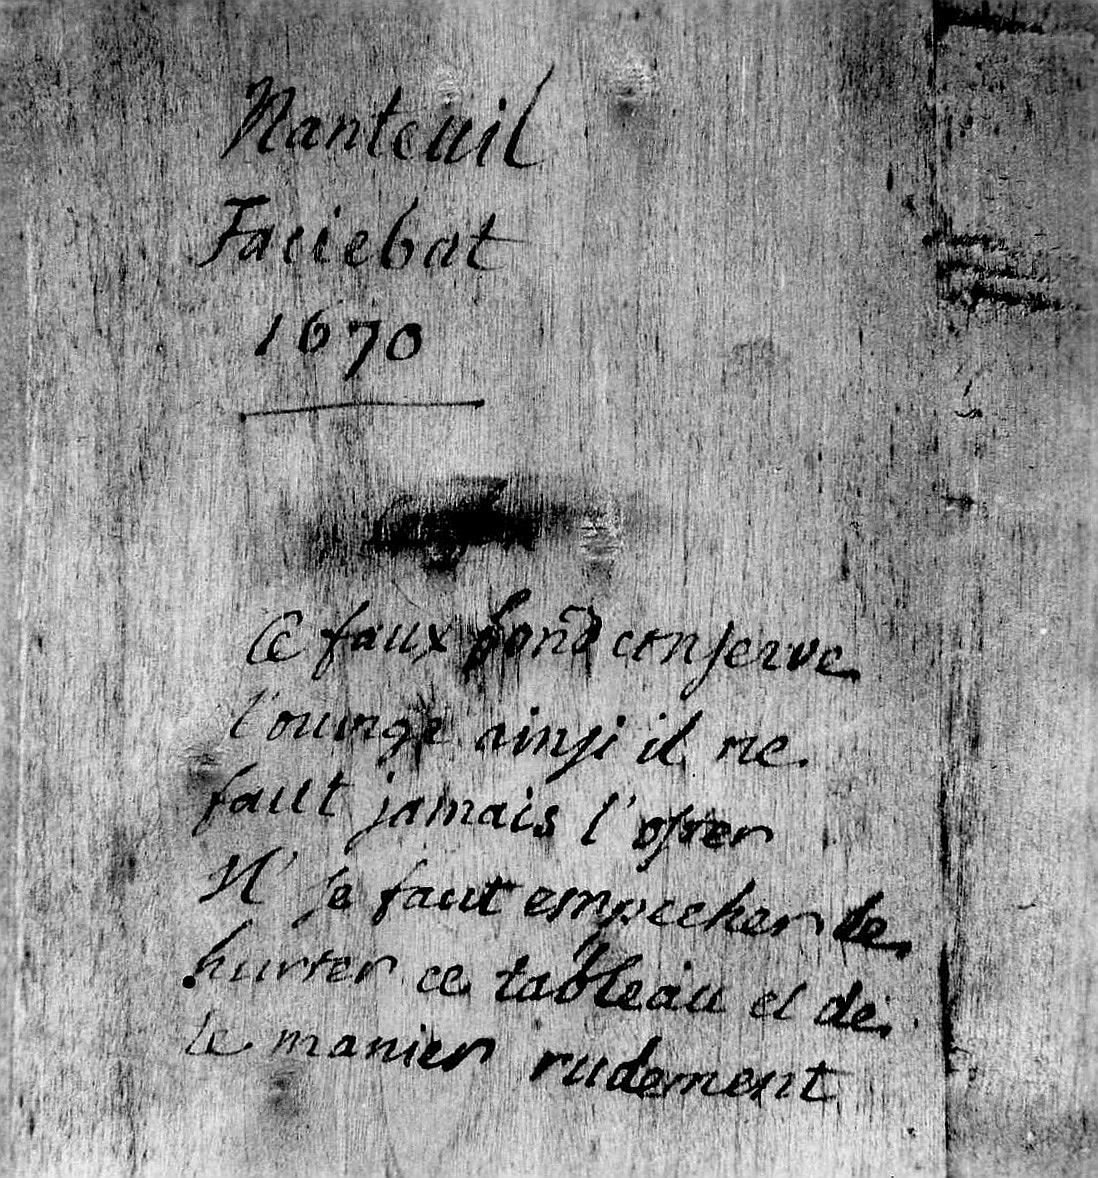 Nanteuil
Faciebat
1670
Ce faux fond conserve
l'ouurage ainsi il ne
faut jamais l'oster
Il se faut empecher de
hurter ce tableau et de
le manier rudement